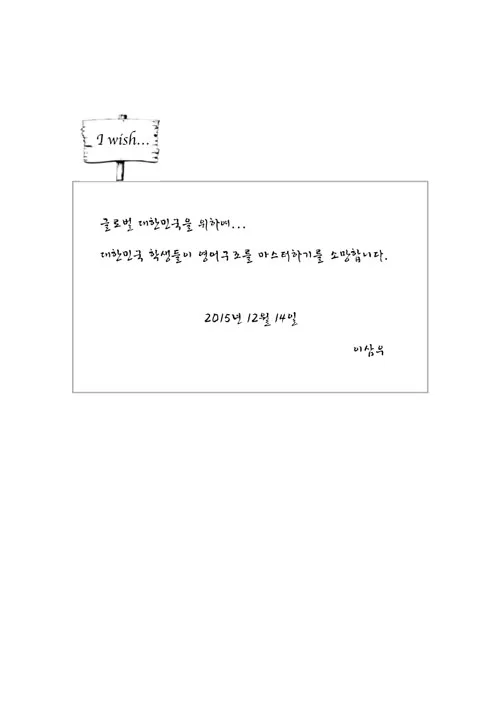 I wish...
글로벌 대한민국을 위하여...
대한민국 학생들이 영어구조를 마스터하기를 소망합니다.
2015년 12월 14일
이삼우